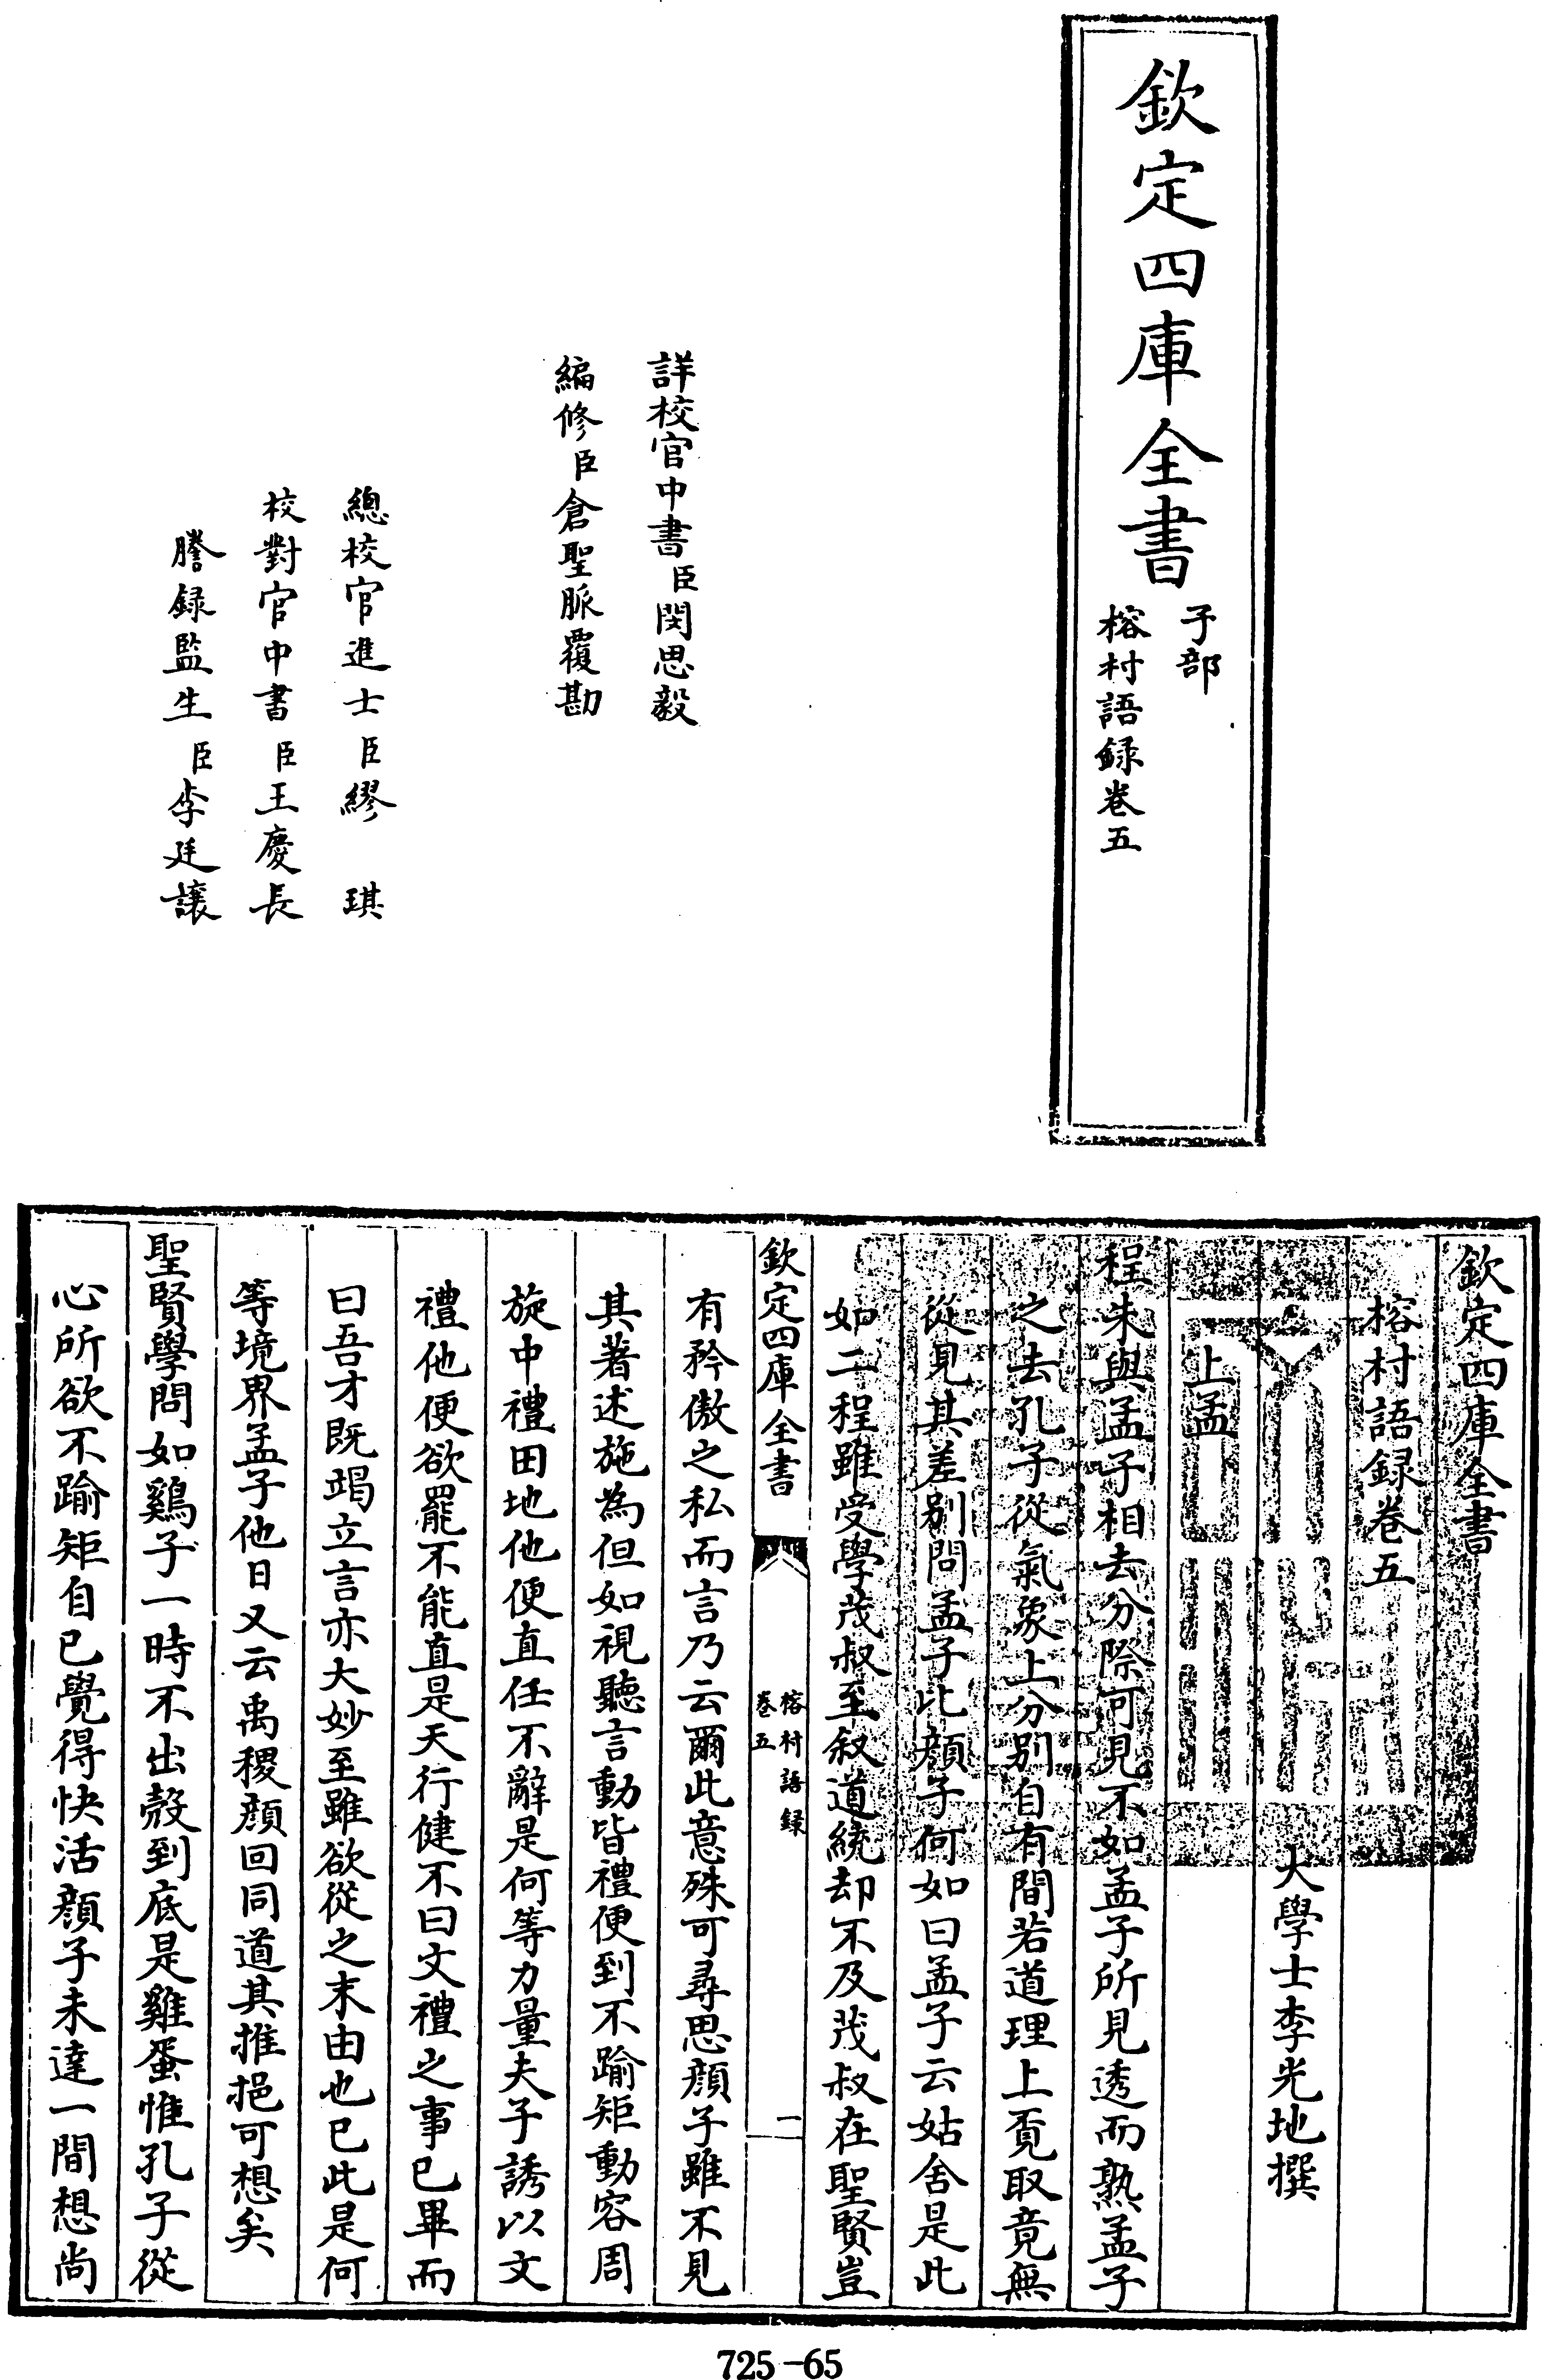 欽定四庫全書
子部
榕村語録卷五
詳校官中書臣閔思毅
編修臣倉聖脈覆勘
總校官進士臣繆琪
校對官中書臣王慶長
謄録監生臣李廷讓
欽定四庫全書
榕村語録卷五
大學士李光地撰
上孟
程朱與孟子相去分際可見不如孟子所見透而熟孟子
之去孔子從氣象上分别自有間若道理上覔取竟無
從見其差别問孟子比顔子何如曰孟子云姑舍是此
如二程雖受學茂叔至叙道統却不及茂叔在聖賢豈
欽定四庫全書
榕村語録
卷五
一
有矜傲之私而言乃云爾此意殊可尋思顔子雖不見
其著述施為但如視聽言動皆禮便到不踰矩動容周
旋中禮田地他便直任不辭是何等力量夫子誘以文
禮他便欲罷不能直是天行健不曰文禮之事已畢而
曰吾才既竭立言亦大妙至雖欲從之末由也已此是何
等境界孟子他日又云禹稷顔回同道其推挹可想矣
聖賢學問如鷄子一時不出殼到底是雞蛋惟孔子從
心所欲不踰矩自已覺得快活顔子未達一間想尚
725-65